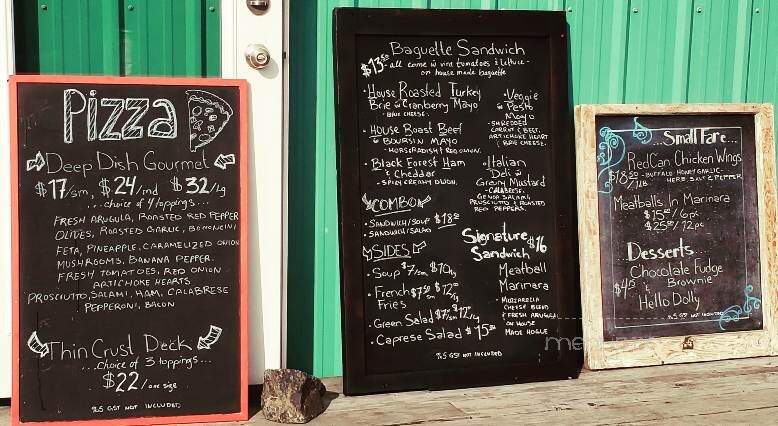 Pizza
Deep Dish Gourmet
$17/sm, $24/md $32/lg
...choice of 4 toppings...
FRESH ARUGULA, ROASTED RED PEPPER
OLIVES, ROASTED GARLIC, BOCONCINI
FETA, PINEAPPLE, CARAMELIZED ONION
MUSHROOMS, BANANA PEPPER.
FRESH TOMATOES, RED ONION
ARTICHOKE HEARTS
PROSCIUTTO, SALAMI, HAM, CALABRESE
PEPPERONI, BACON
Thin Crust Deck
...choice of 3 toppings...
$22/one size
%5 GST NOT INCLUDED
Baguette Sandwich
$13.50 - all come w vine tomatoes & lettuce -
on house made baguette
• House Roasted Turkey
Brie w Cranberry Mayo
- BLUE CHEESE.
• House Roast Beef
w BOURSIN MAYO
- HORSERADISH & RED ONION.
• Black Forest Ham
& Cheddar
- SPICY CREAMY DIJON.
• Veggie
w Pesto
Mayo
- SHREDDED
CARROT & BEET.
ARTICHOKE HEART
& BRIE CHEESE.
• Italian
Deli w
Grainy Mustard
- CALABRESE.
GENOA SALAMI
PROSCIUTTO & ROASTED
RED PEPPERS.
COMBO
- SANDWICH/SOUP $18.50
- SANDWICH/SALAD
SIDES
• Soup $7/sm $10/lg
• French $7.50 $12/lg
Fries
• Green Salad $7/sm $12/lg
• Caprese Salad $15.50
%5 GST NOT INCLUDED
Signature $16
Sandwich
Meatball
Marinara
- MOZZARELLA
CHEESE BLEND
& FRESH ARUGULA
ON HOUSE
MADE HOGUE
...Small Fare...
RedCan Chicken Wings
$18.50/1LB - BUFFALO. HONEY GARLIC -
HERB, SALT & PEPPER
Meatballs In Marinara
$15.00/6pc
$25.00/12pc
...Desserts...
Chocolate Fudge
Brownie
$4.50 &
Hello Dolly
%5 GST NOT INCLUDED